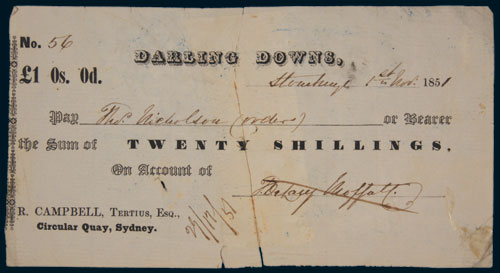 No. 56
DARLING DOWNS,
£1 0s. 0d.
Stonehenge 1st Nov. 1851
Pay Thos. Nicholson (orders) or Bearer
the Sum of TWENTY SHILLINGS,
On Account of
R. CAMPBELL, TERTIUS, ESQ.,
Circular Quay, Sydney.